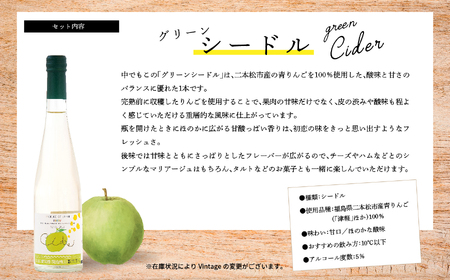 セット内容
グリーン
シードル
green
Cider
中でもこの「グリーンシードル」は、二本松市産の青りんごを100%使用した、酸味と甘さの
バランスに優れた1本です。
完熟前に収穫したりんごを使用することで、果肉の甘味だけでなく、皮の渋みや酸味も程よ
く感じていただける重層的な風味に仕上がっています。
瓶を開けたときにほのかに広がる甘酸っぱい香りは、初恋の味をきっと思い出すようなフ
レッシュさ。
後味では甘味とともにさっぱりとしたフレーバーが広がるので、チーズやハムなどとのシ
ンプルなマリアージュはもちろん、タルトなどのお菓子とも一緒に楽しんでいただけます。
●種類:シードル
●使用品種:福島県二本松市産青りんご
(「津軽」ほか)100%
●味わい:甘口/ほのかな酸味
●おすすめの飲み方:10℃以下
●アルコール度数:5%
※在庫状況によりVintageの変更がございます。
Cidre